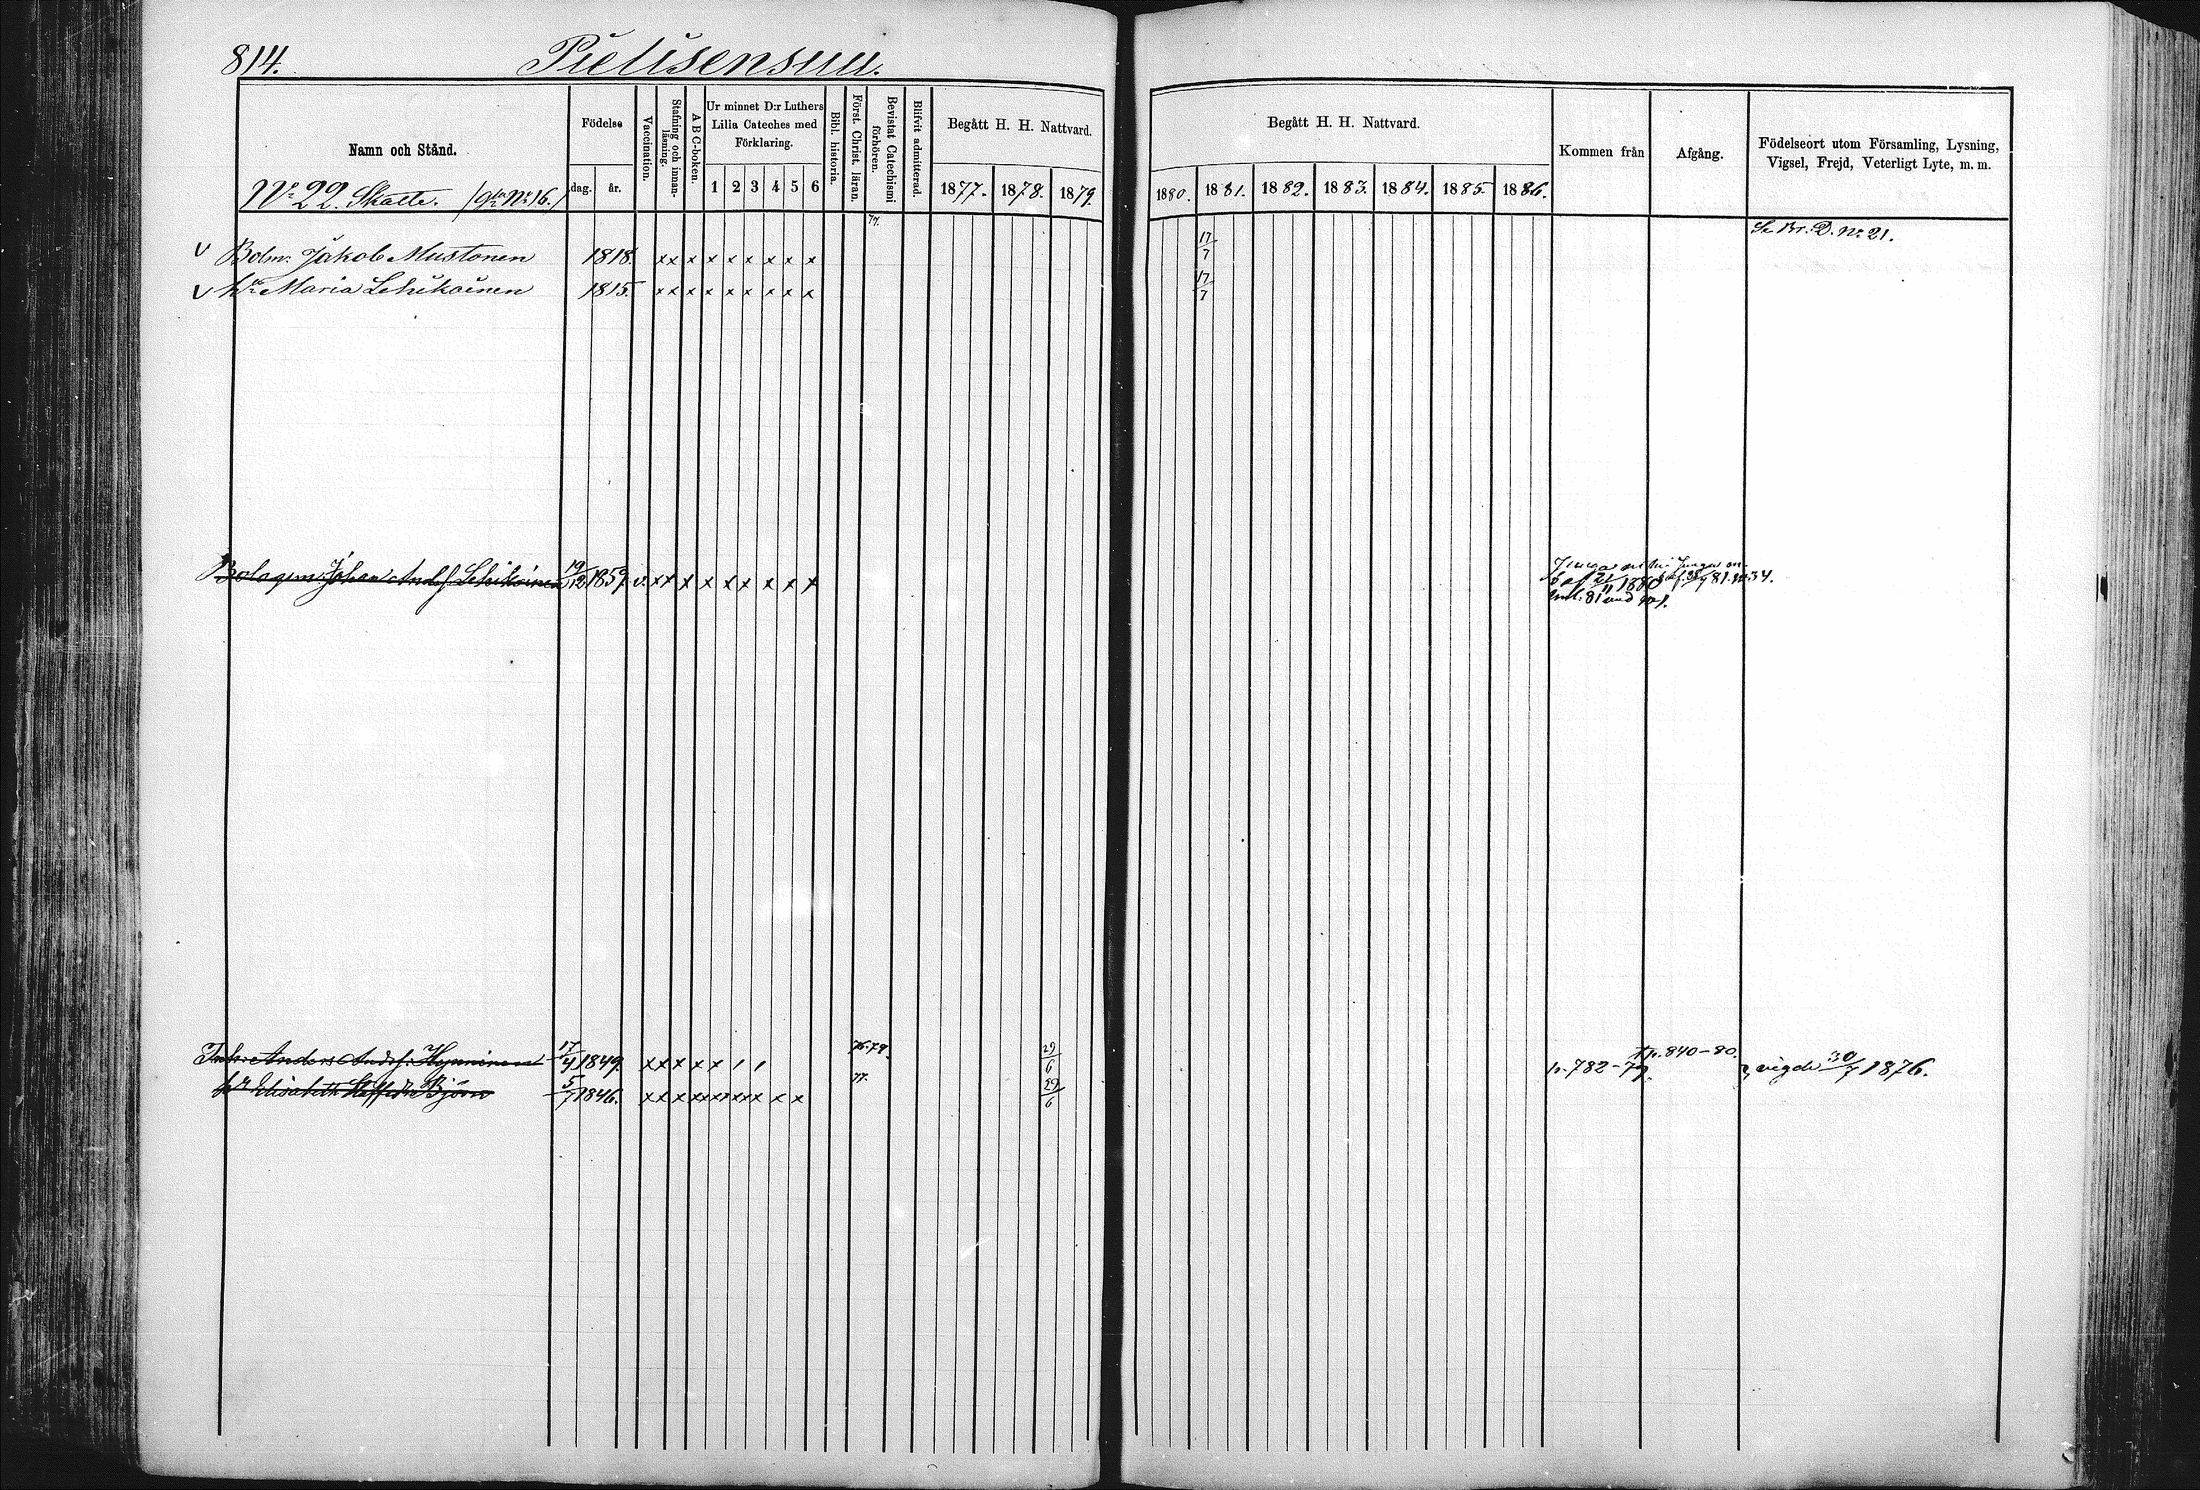 814. Pielisensuu.
Namn och Stånd.
Födelse
dag. år.
Vaccination.
Stafning och innanläsning.
A B C-boken.
Ur minnet D:r Luthers Lilla Cateches med Förklaring.
1 2 3 4 5 6
Bibl. historia.
Först. Christ. läran.
Bevistat Catechismi förhören.
Blifvit admitterad.
Begått H. H. Nattvard.
1877. 1878. 1879.
Begått H. H. Nattvard.
1880. 1881. 1882. 1883. 1884. 1885. 1886.
Kommen från
Afgång.
Födelseort utom Församling, Lysning, Vigsel, Frejd, Veterligt Lyte, m. m.
No 22. Skatte. No 16.
77. Se Br. D. No 21.
v Bolm: Jakob Mustonen 1818. x x x x x x x x x 17/7
v h:u Maria Lehikoinen 1815. x x x x x x x x x 17/7
Bolagsm: Johan Andrs. Lehikoinen 19/12 1859. v. x x x x x x x x x
Inh: Anders Andrs. Hyvärinen 17/4 1849. x x x x x , , 29/6 p. 782-79. Tr. 840-80. vigde 30/7 1876.
h:u Elisabeth Staffsdr Björn 5/7 1846. x x x x x x x x x x x 77. 29/6